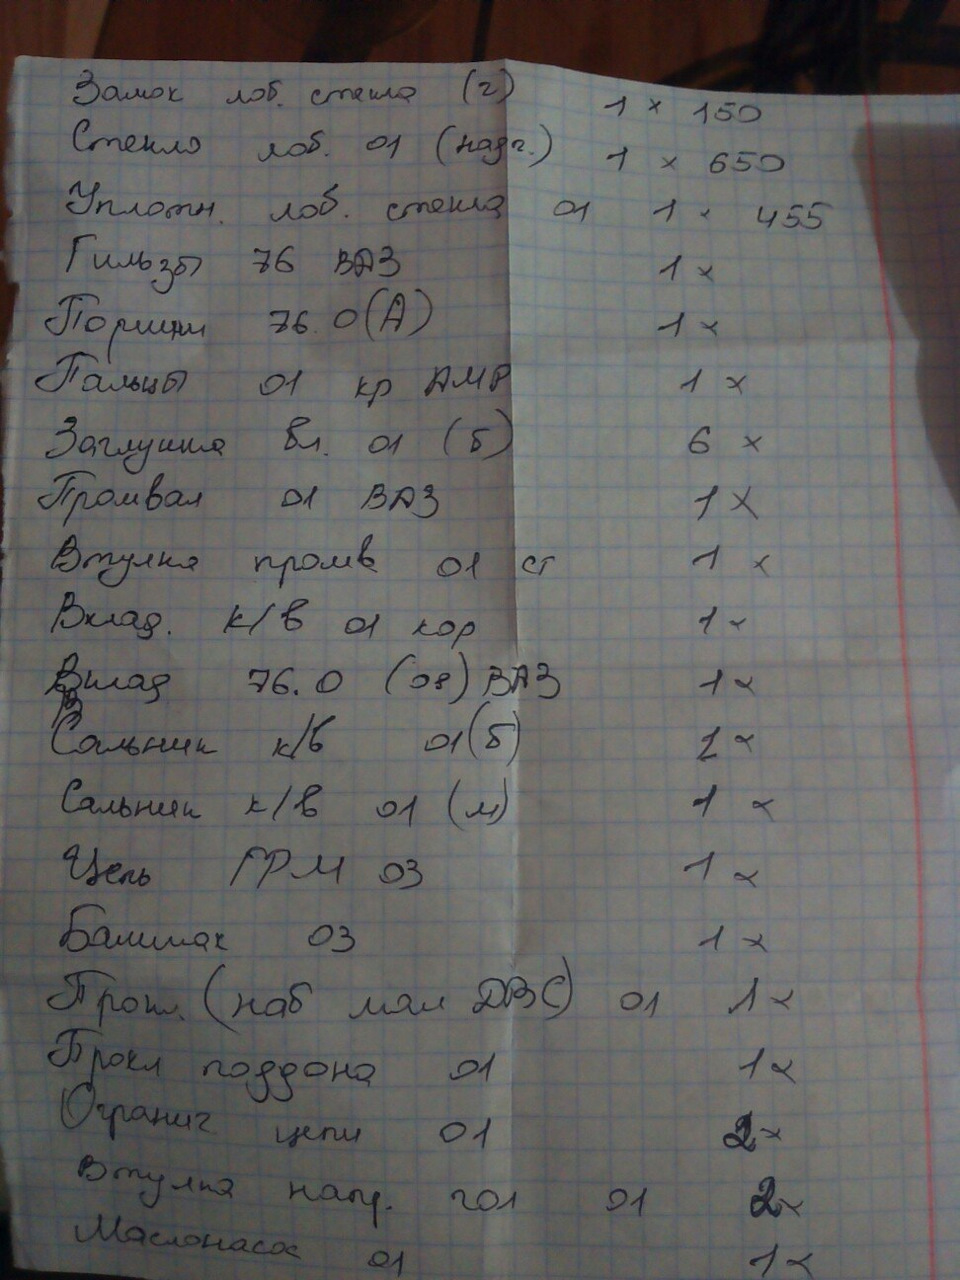 Замок лоб. стекла (г) 1 x 150
Стекло лоб. 01 (надг.) 1 x 650
Уплотн. лоб. стекла 01 1 x 455
Гильзы 76 ВАЗ 1 x
Поршни 76.0 (А) 1 x
Пальцы 01 кр АМР 1 x
Заглушка бл. 01 (б) 6 x
Промвал 01 ВАЗ 1 x
Втулка промв 01 ст 1 x
Вклад. к/в 01 кор 1 x
Вклад 76.0 ВАЗ 1 x
Сальник к/в 01 (б) 1 x
Сальник к/в 01 (м) 1 x
Цепь ГРМ 03 1 x
Башмак 03 1 x
Прокл. (наб мал ДВС) 01 1 x
Прокл поддона 01 1 x
Огранич цепи 01 2 x
Втулка напр. гол 01 2 x
Маслонасос 01 1 x